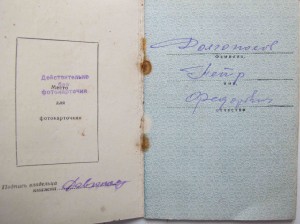 Действительно
без
Место
фотокарточки
для
фотокарточки
Подпись владельца
книжки
Долгополов
фамилия
Петр
имя
Федорович
отчество